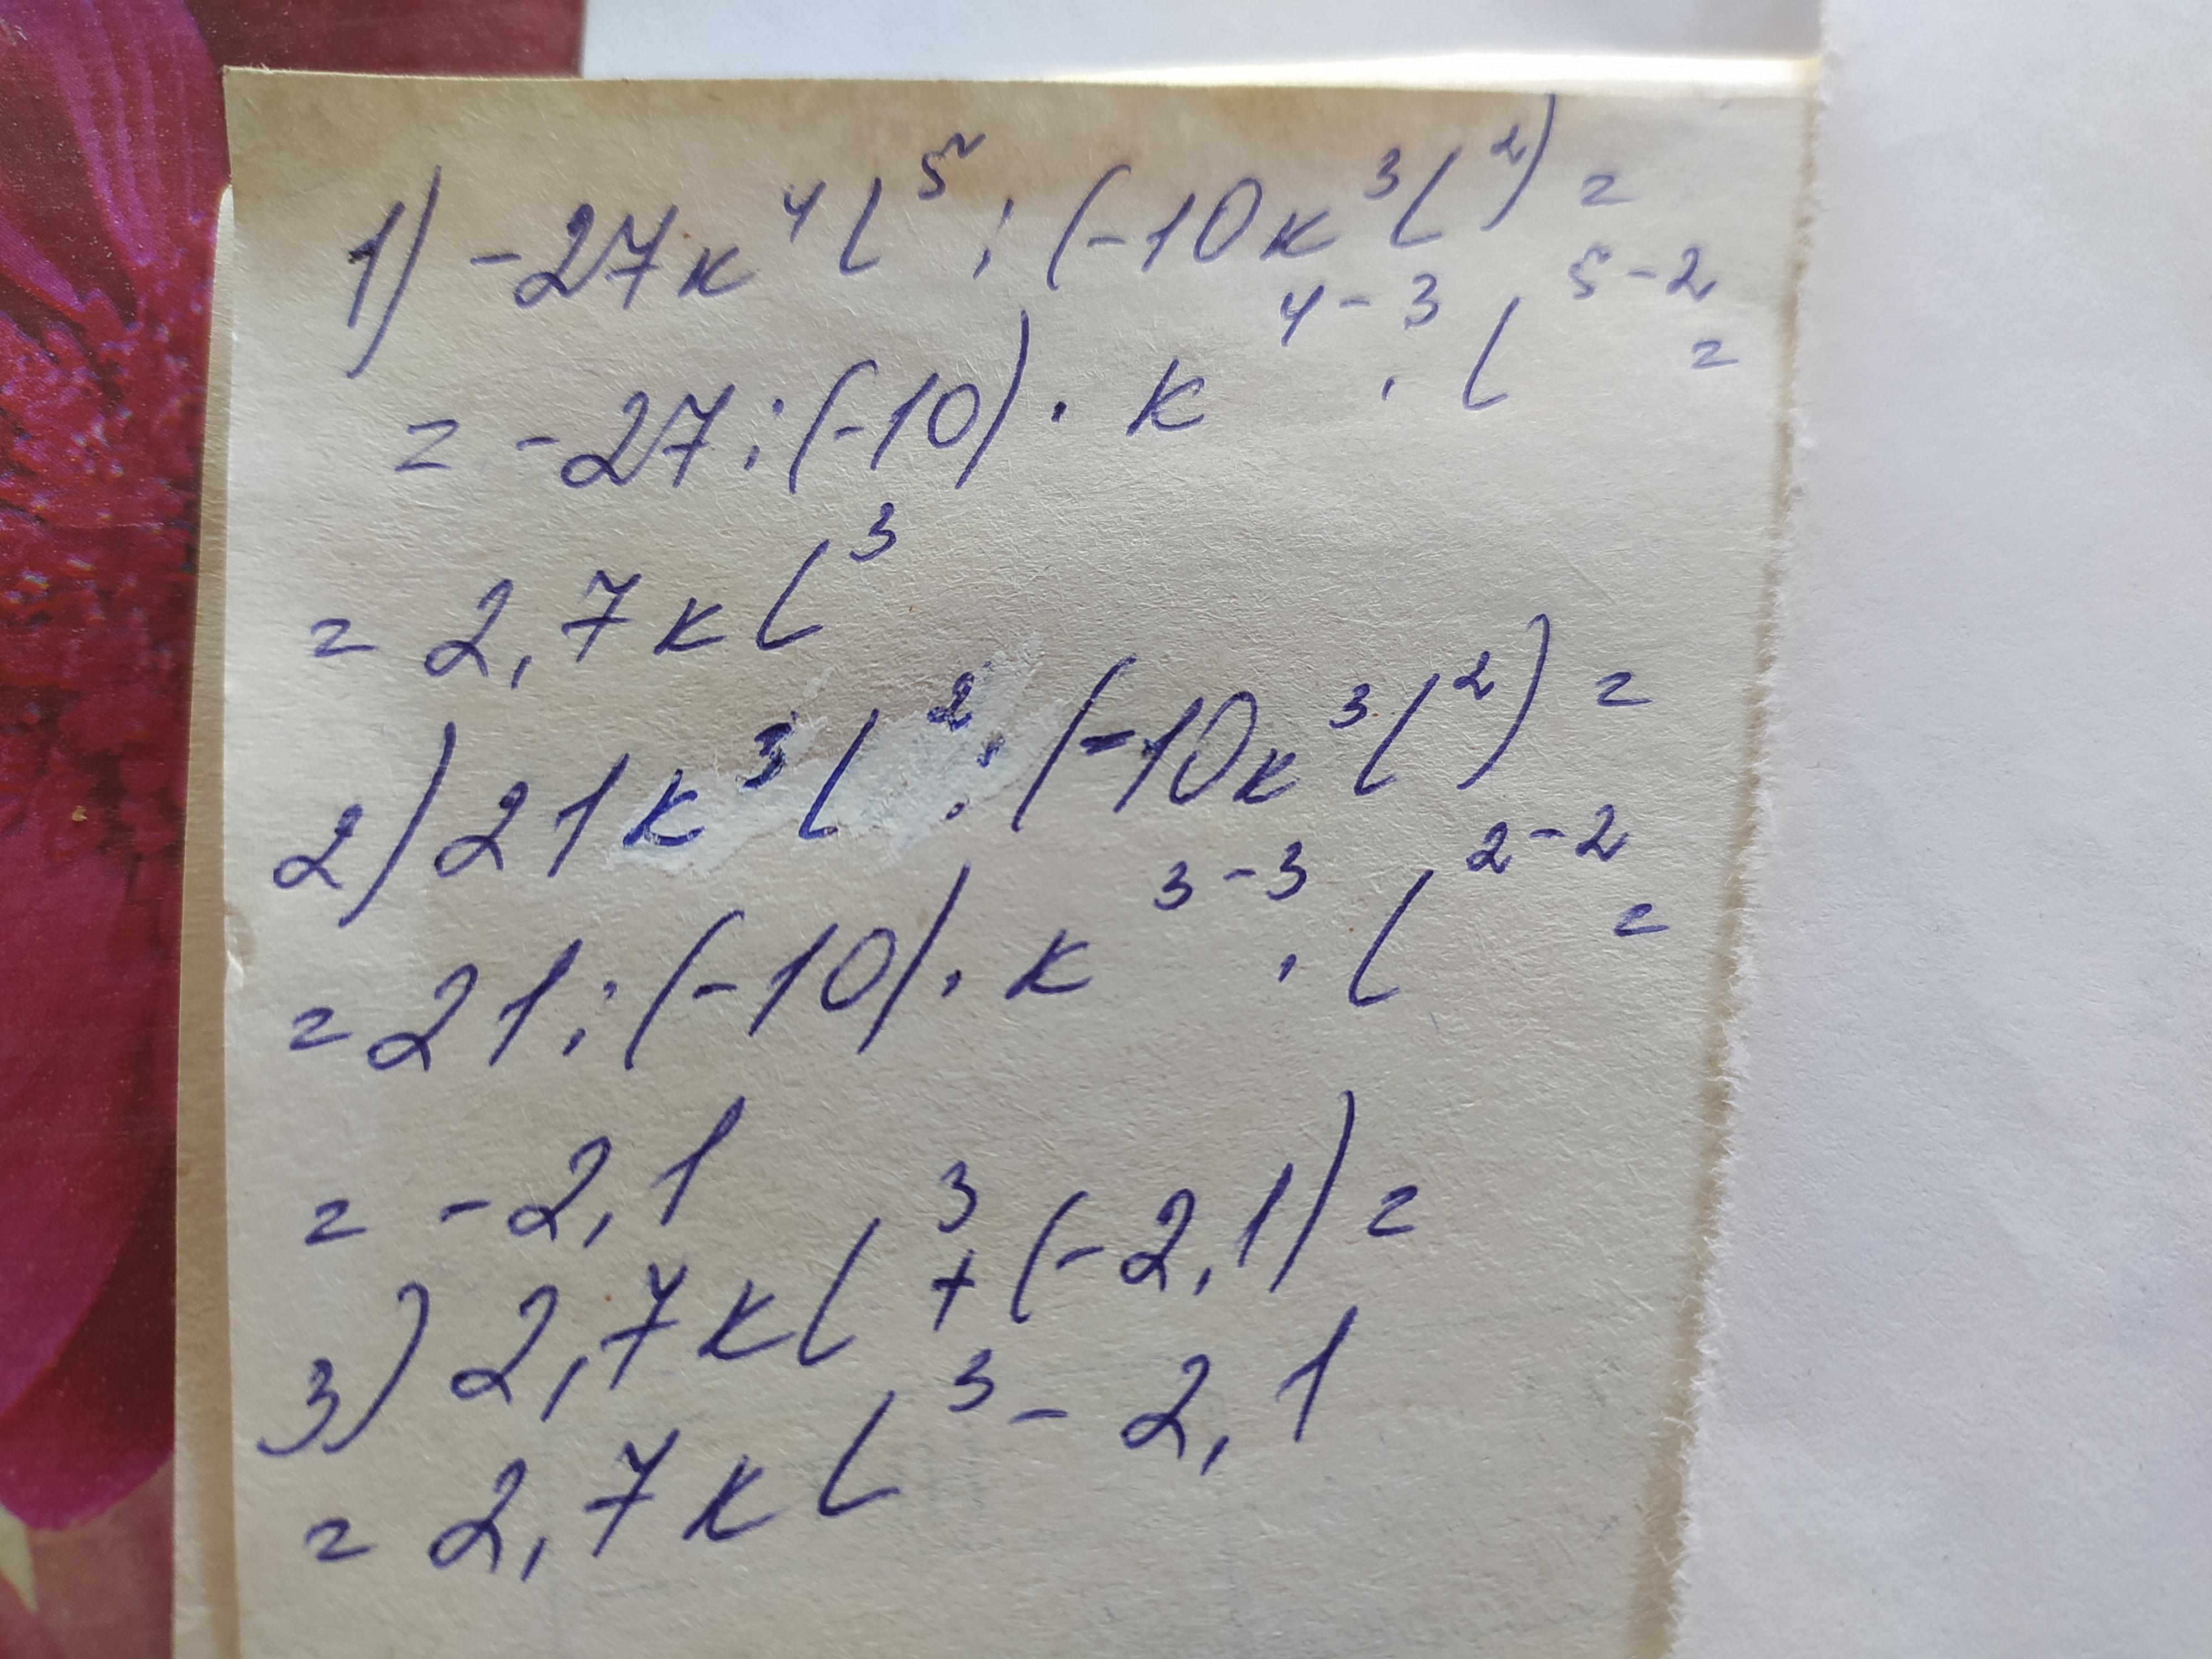 1) -27к⁴l⁵ : (-10к³l²) =
= -27 : (-10) · к⁴⁻³ · l⁵⁻² =
= 2,7кl³
2) 21к³l² : (-10к³l²) =
= 21 : (-10) · к³⁻³ · l²⁻² =
= -2,1
3) 2,7кl³ + (-2,1) =
= 2,7кl³ - 2,1